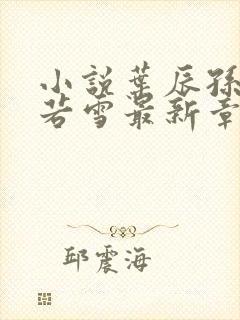 小說葉辰孫
若雪最新章
邱震海